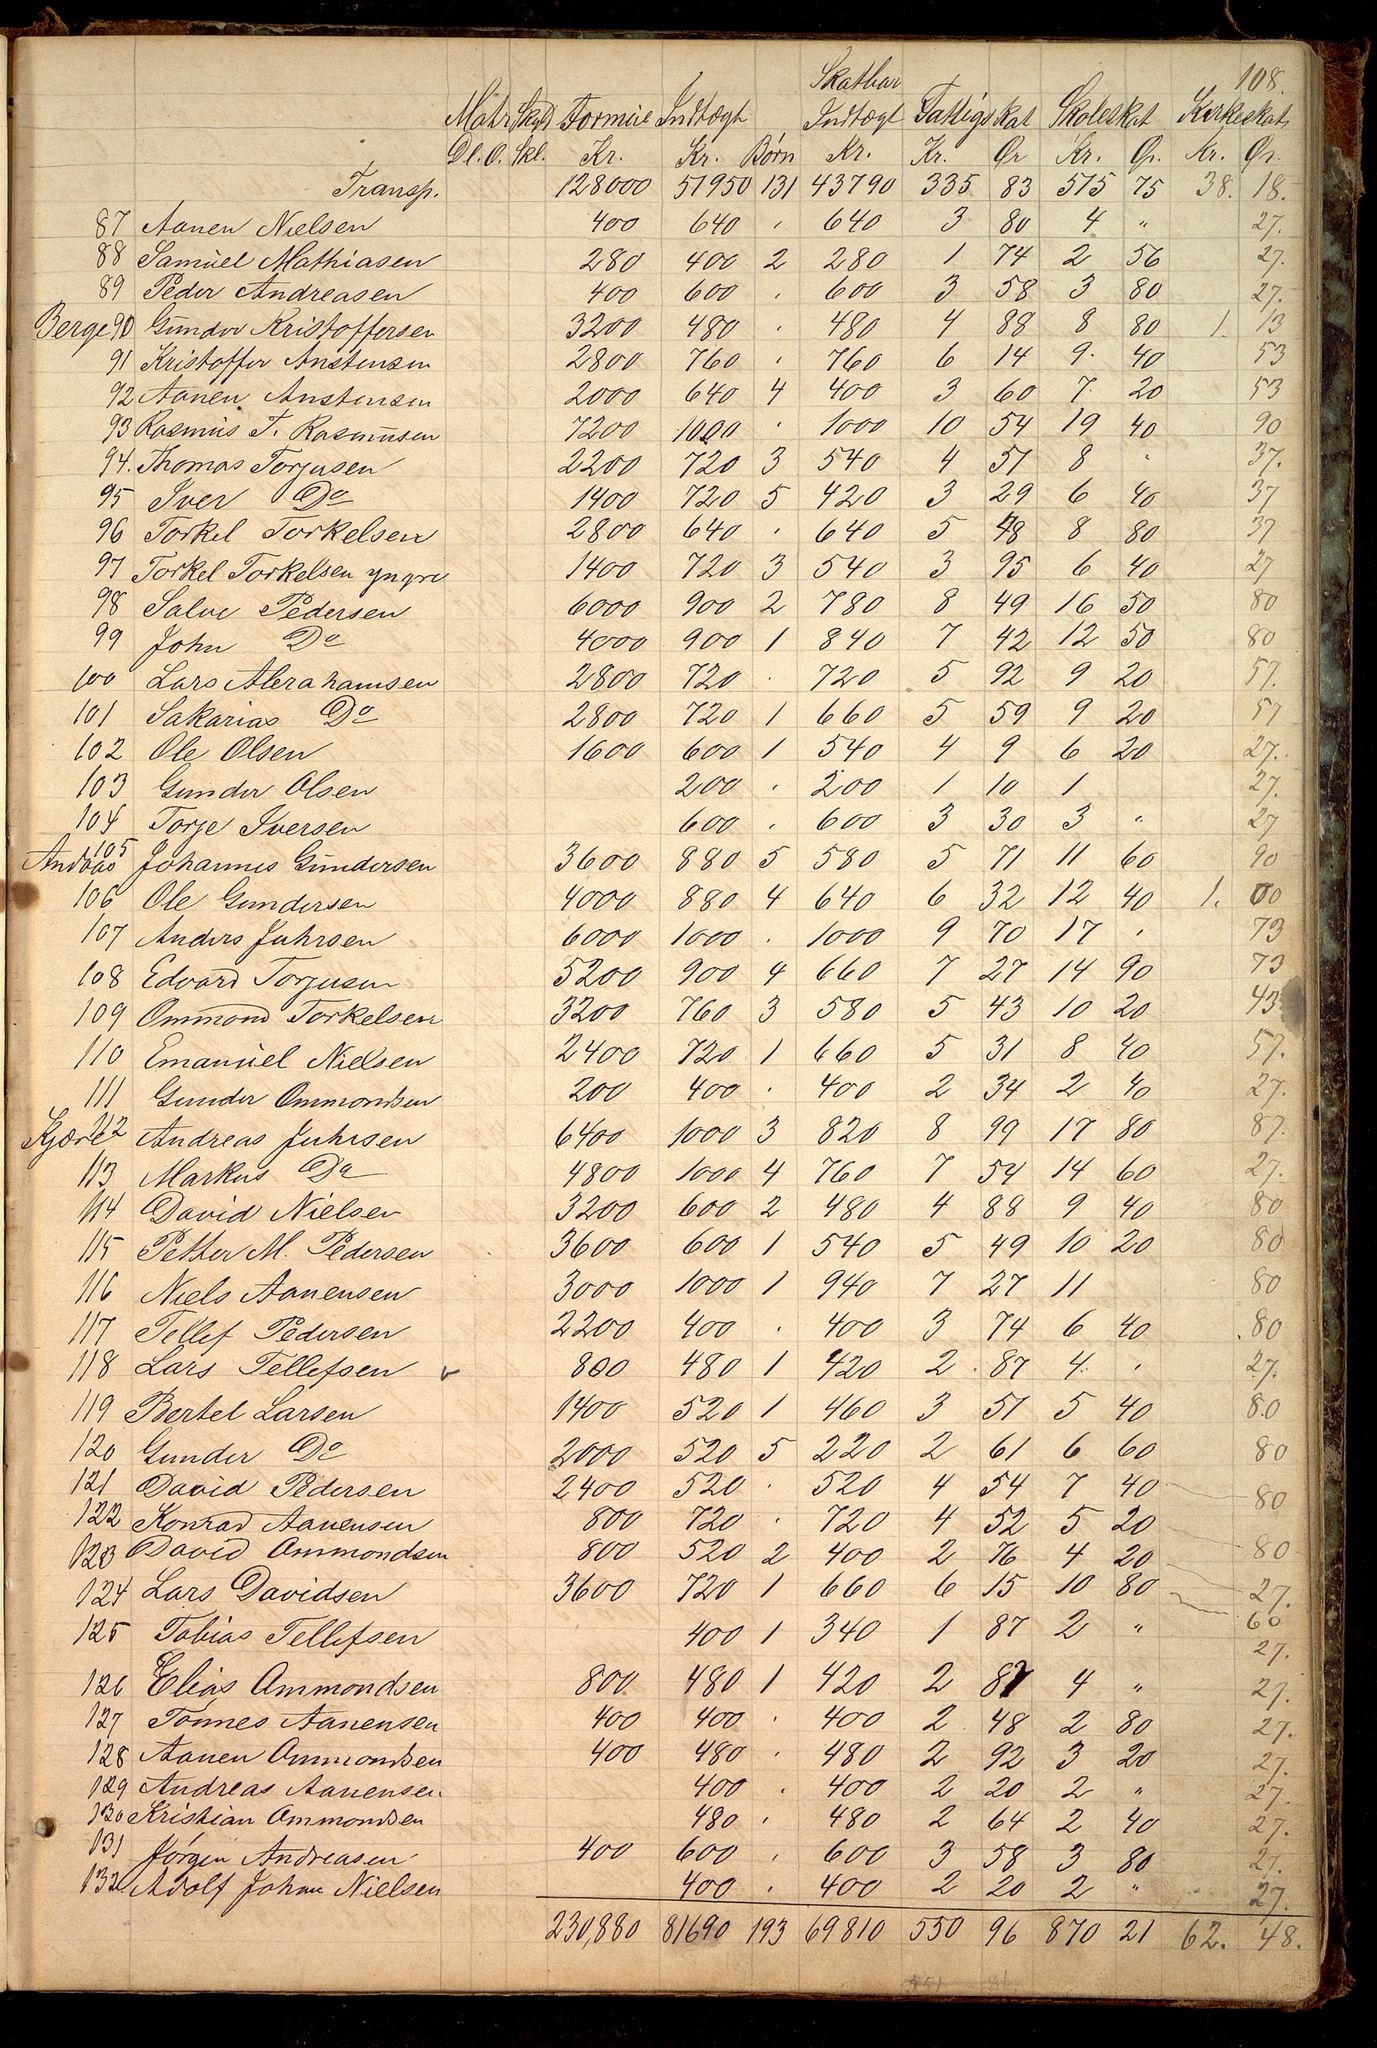 108.
Skatbar
Matr. Skyld Formue Indtægt Indtægt Fattigskat Skoleskat Kirkeskat
Dl. O. Skl. Kr. Kr. Børn Kr. Kr. Ør Kr. Ør. Kr. Ør.
Transp. 128000 51950 131 43790 335 83 515 75 38. 18.
87 Aanen Nielsen 400 640 · 640 3 80 4 " 27.
88 Samuel Mathiasen 280 400 2 280 1 74 2 56 27.
89 Peder Andreasen 400 600 · 600 3 58 3 80 27.
Berge 90 Gunder Kristoffersen 3200 480 · 480 4 88 8 80 1. 13
91 Kristoffer Anstensen 2800 760 · 760 6 14 9. 40 53
92 Aanen Anstensen 2000 640 4 400 3 60 7 20 53
93 Rasmus T. Rasmusen 7200 1000 · 1000 10 54 19 40 90
94. Thomas Torjusen 2200 720 3 540 4 51 8 · 37.
95 Iver Do 1400 720 5 420 3 29 6 40 37
96 Torkel Torkelsen 2800 640 · 640 5 48 8 80 37
97 Torkel Torkelsen yngre 1400 720 3 540 3 95 6 40 27
98 Salve Pedersen 6000 900 2 780 8 49 16 50 80
99 John Do 4000 900 1 840 7 42 12 50 80
100 Lars Aberahamsen 2800 720 · 720 5 92 9 20 57.
101 Sakarias Do 2800 720 1 660 5 59 9 20 57
102 Ole Olsen 1600 600 1 540 4 9 6 20 27.
103 Gunder Olsen 200 · 200 1 10 1 27.
104 Torje Iversen 600 · 600 3 30 3 " 27
Andaas 105 Johannes Gundersen 3600 880 5 580 5 71 11 60 90
106 Ole Gundersen 4000 880 4 640 6 32 12 40 1. 00
107 Anders Juhrsen 6000 1000 · 1000 9 70 17 · 73
108 Edvard Torjusen 5200 900 4 660 7 27 14 90 73
109 Ommond Torkelsen 3200 760 3 580 5 43 10 20 43
110 Emanuel Nielsen 2400 720 1 660 5 31 8 40 57.
111 Gunder Ommondsen 200 400 · 400 2 34 2 40 27.
Kjære 112 Andreas Juhrsen 6400 1000 3 820 8 99 17 80 87.
113 Markus Do 4800 1000 4 760 7 54 14 60 27.
114 David Nielsen 3200 600 2 480 4 88 9 40 80
115 Petter M. Pedersen 3600 600 1 540 5 49 10 20 80
116 Niels Aanensen 3000 1000 1 940 7 27 11 80
117 Tellef Pedersen 2200 400 · 400 3 74 6 40 80
118 Lars Tellefsen 800 480 1 420 2 87 4 · 27.
119 Bertel Larsen 1400 520 1 460 3 51 5 40 80
120 Gunder Do 2000 520 5 220 2 61 6 60 80
121 David Pedersen 2400 520 · 520 4 54 7 40 80
122 Konrad Aanensen 800 720 · 720 4 52 5 20 80
123 David Ommondsen 800 520 2 400 2 76 4 20 27.
124 Lars Davidsen 3600 720 1 660 6 15 10 80 60
125 Tobias Tellefsen 400 1 340 1 87 2 " 27.
126 Elias Ommondsen 800 480 1 420 2 87 4 " 27.
127 Tønnes Aanensen 400 400 · 400 2 48 2 80 27.
128 Aanen Ommondsen 400 480 · 480 2 92 3 20 27.
129 Andreas Aanensen 400 · 400 2 20 2 " 27.
130 Kristian Ommondsen 480 · 480 2 64 2 40 27.
131 Jørgen Andreasen 400 600 · 600 3 58 3 80 27.
132 Adolf Johan Nielsen 400 · 400 2 20 2 " 27.
230,880 81690 193 69810 550 96 870 21 62. 48.